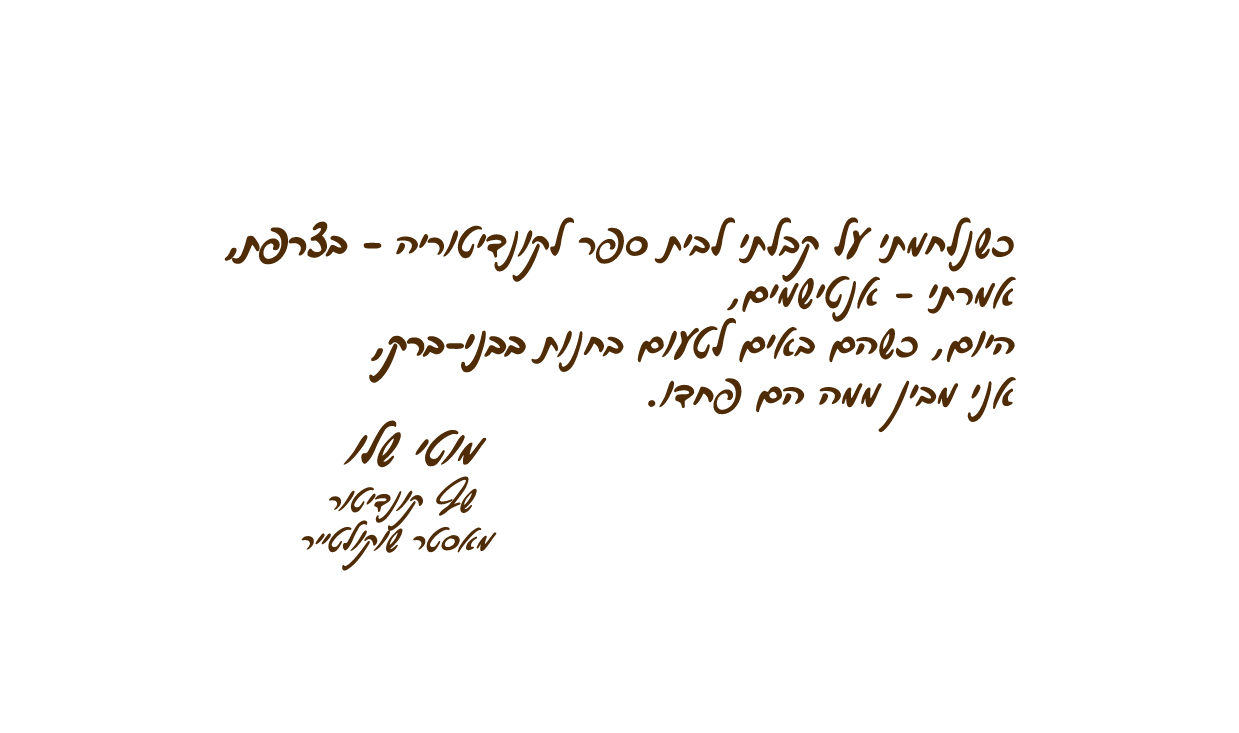 כשנלחמתי על קבלתי לבית ספר לקונדיטוריה - בצרפת,
אמרתי - אנטישמים,
היום, כשהם באים לטעום בחנות בבני-ברק,
אני מבין ממה הם פחדו.
מוטי שלו
שף קונדיטור
מאסטר שוקולטייר